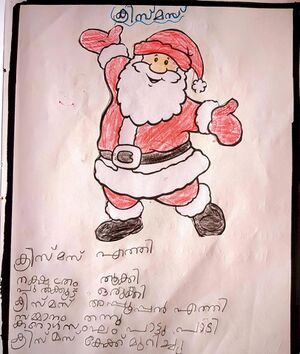 ക്രിസ്മസ്
ക്രിസ്മസ് എത്തി
നക്ഷത്രം തൂക്കി
പുൽക്കൂട് ഒരുക്കി
ക്രിസ്മസ് അപ്പൂപ്പൻ എത്തി
സമ്മാനം തന്നു
കരോൾസംഘം പാട്ടു പാടി
ക്രിസ്മസ് കേക്ക് മുറിച്ചു